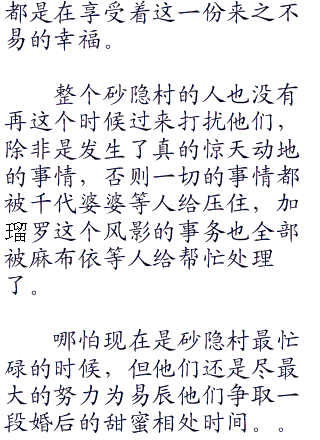 都是在享受着这一份来之不
易的幸福。
整个砂隐村的人也没有
再这个时候过来打扰他们，
除非是发生了真的惊天动地
的事情，否则一切的事情都
被千代婆婆等人给压住，加
瑠罗这个风影的事务也全部
被麻布依等人给帮忙处理
了。
哪怕现在是砂隐村最忙
碌的时候，但他们还是尽最
大的努力为易辰他们争取一
段婚后的甜蜜相处时间。。